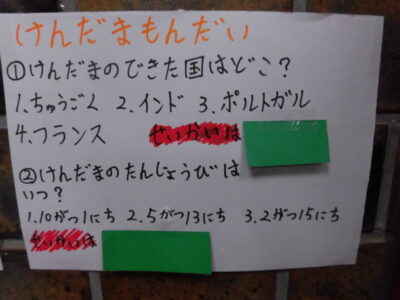 けんだまもんだい
①けんだまのできた国はどこ?
1.ちゅうごく 2.インド 3.ポルトガル
4.フランス せいかいは
②けんだまのたんじょうびは
いつ?
1.10がつ1にち 2.5がつ13にち 3.2がつ15にち
せいかいは